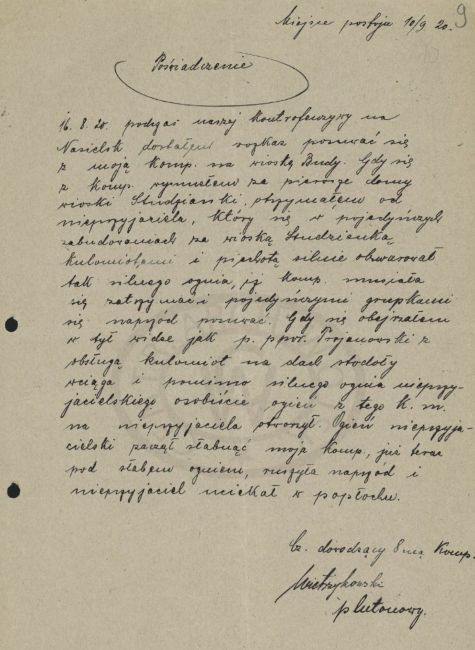 9
Miejsce postoju 10/9 20.
Poświadczenie
16. 8. 20. podczas naszej kontrofenzywy na
Nasielsk dostałem rozkaz posuwać się
z moją Komp. na wioskę Budy. Gdy się
z Komp. wysunąłem za pierwsze domy
wioski Studzianki, otrzymałem od
nieprzyjaciela, który się w pojedyńczych
zabudowaniach za wioską Studzianką
kulomiotami i piechotą silnie obwarował
tak silnego ognia, iż Komp. musiała
się zatrzymać i pojedyńczymi grupkami
się naprzód posuwać. Gdy się obejrzałem
w tył widzę jak p. ppor. Trojanowski z
obsługą kulomiot na dach stodoły
wciąga i pomimo silnego ognia nieprzy-
jacielskiego osobiście ogień z tego K. m.
na nieprzyjaciela otworzył. Ogień nieprzyja-
cielski zaczął słabnąć moja Komp., już teraz
pod słabem ogniem, ruszyła naprzód i
nieprzyjaciel uciekał w popłochu.
Cz. dowodzący 8mą Komp.
plutonowy.